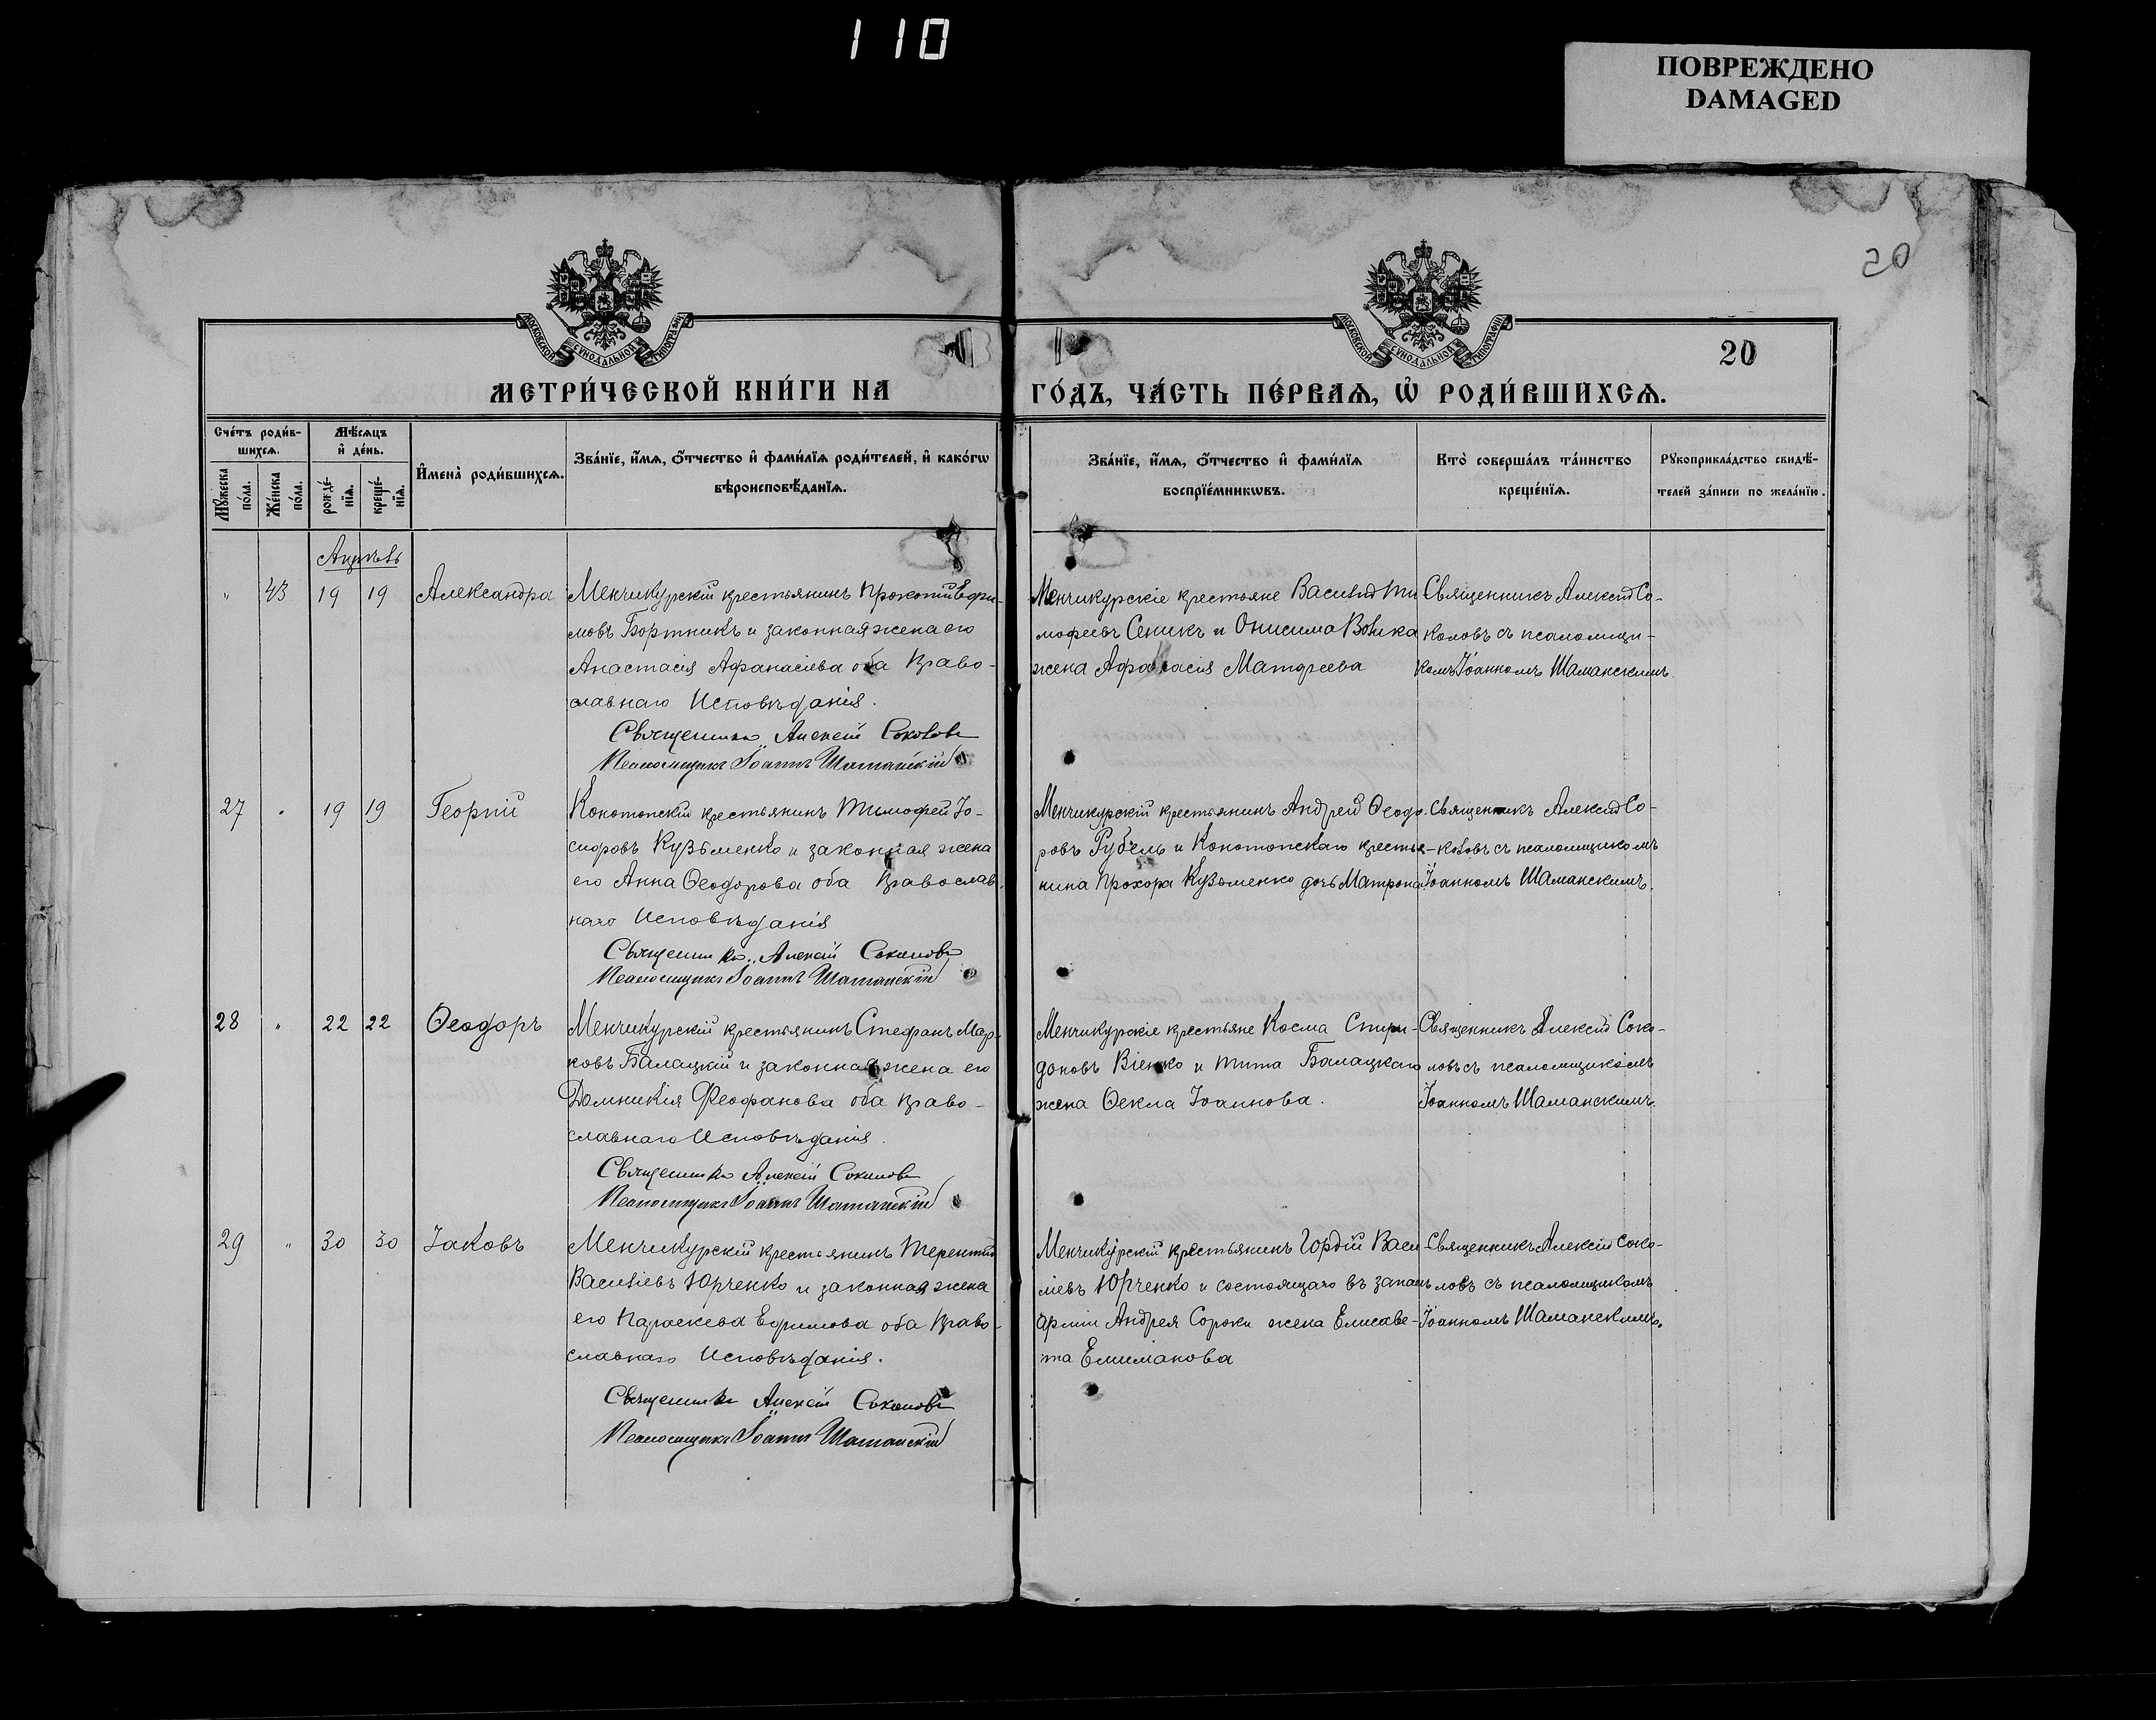 110
ПОВРЕЖДЕНО
DAMAGED
20
МОСКОВСКОЙ СѴНОДАЛЬНОЙ ТИПОГРАФІИ
МОСКОВСКОЙ СѴНОДАЛЬНОЙ ТИПОГРАФІИ
20
МЕТРИ́ЧЕСКОЙ КНИ́ГИ НА
ГО́ДЪ, ЧА́СТЬ ПЕ́РВАѦ, Ѽ РОДИ́ВШИХСѦ.
Сче́тъ роди́в-
шихсѧ.
Мꙋ́жеска
по́ла.
Же́нска
по́ла.
Мѣ́сѧцъ
и҆ де́нь.
рожде́-
нїѧ.
креще́-
нїѧ.
И҆мена̀ роди́вшихсѧ.
Зва́нїе, и҆́мѧ, ѻ҆́тчество и҆ фами́лїѧ роди́телей, и҆ како́гѡ
вѣроисповѣ́данїѧ.
Зва́нїе, и҆́мѧ, ѻ҆́тчество и҆ фами́лїѧ
воспрїе́мникѡвъ.
Кто̀ соверша́лъ та́инство
креще́нїѧ.
Рꙋкоприкла́дство свидѣ́-
телей за́писи по жела́нїю.
Апрѣль
" 43 19 19 Александра
Менчикурскій крестьянинъ Прокопій Ефи-
мовъ Бортникъ и законная жена его
Анастасія Афанасіева оба Право-
славнаго Исповѣданія.
Священникъ Алексій Соколовъ
Псаломщикъ Іоаннъ Шаманскій
Менчикурскіе крестьяне Василій Ти
мофеевъ Сеникъ и Онисима Вовка
жена Афанасія Матфеева
Священникъ Алексій Со-
коловъ съ псаломщи-
комъ Іоанномъ Шаманскимъ.
27 " 19 19 Георгій
Конотопскій крестьянинъ Тимофей Іо-
сифовъ Кузьменко и законная жена
его Анна Ѳеодорова оба Православ-
наго Исповѣданія
Священникъ Алексій Соколовъ
Псаломщикъ Іоаннъ Шаманскій
Менчикурскій крестьянинъ Андрей Ѳеодо-
ровъ Рубель и Конотопскаго крестья-
нина Прохора Кузьменко дочь Матрона
Священникъ Алексій Со-
коловъ съ псаломщикомъ
Іоанномъ Шаманскимъ.
28 " 22 22 Ѳеодоръ
Менчикурскій крестьянинъ Стефанъ Мар-
ковъ Балацкій и законная жена его
Домникія Феофанова оба Право-
славнаго Исповѣданія.
Священникъ Алексій Соколовъ
Псаломщикъ Іоаннъ Шаманскій
Менчикурскіе крестьяне Косма Спири-
доновъ Віенко и Тита Балацкаго
жена Ѳекла Іоаннова.
Священникъ Алексій Соко-
ловъ съ псаломщикомъ
Іоанномъ Шаманскимъ.
29 " 30 30 Іаковъ
Менчикурскій крестьянинъ Терентій
Василіевъ Юрченко и законная жена
его Параскева Ефимова оба Право-
славнаго Исповѣданія.
Священникъ Алексій Соколовъ
Псаломщикъ Іоаннъ Шаманскій
Менчикурскій крестьянинъ Гордій Васи
ліевъ Юрченко и состоящаго въ запасѣ
арміи Андрея Сороки жена Елисаве-
та Емиманова
Священникъ Алексій Соко-
ловъ съ псаломщикомъ
Іоанномъ Шаманскимъ.